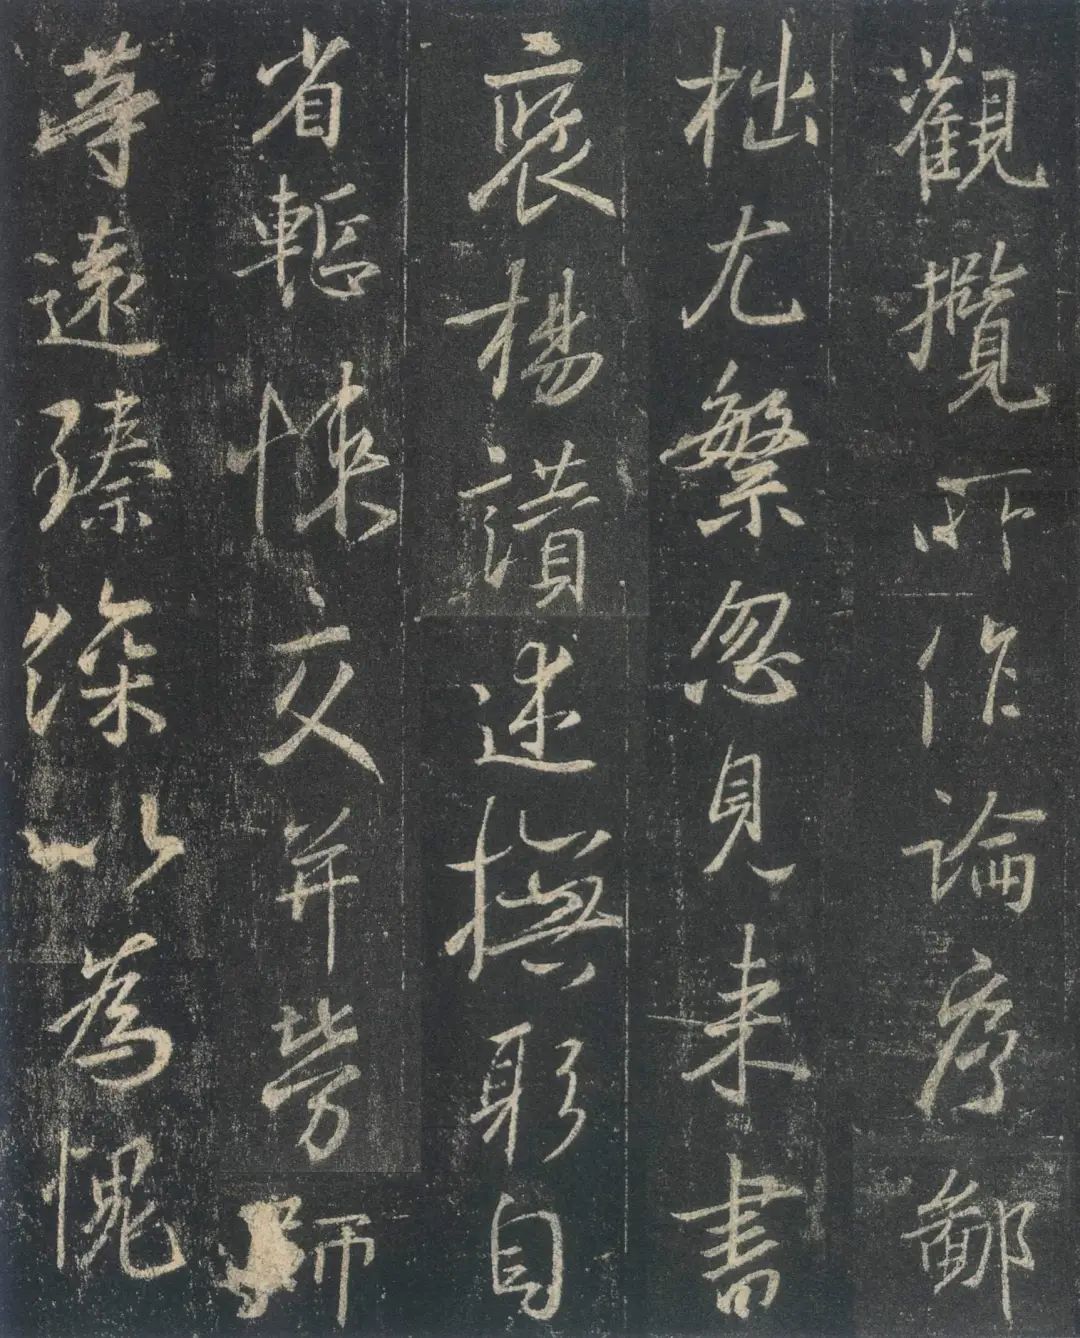 觀攬所作論序鄙
拙尤繁忽見来書
褒揚讃述撫躬自
省慙悚交并勞師
等遠臻深以為愧